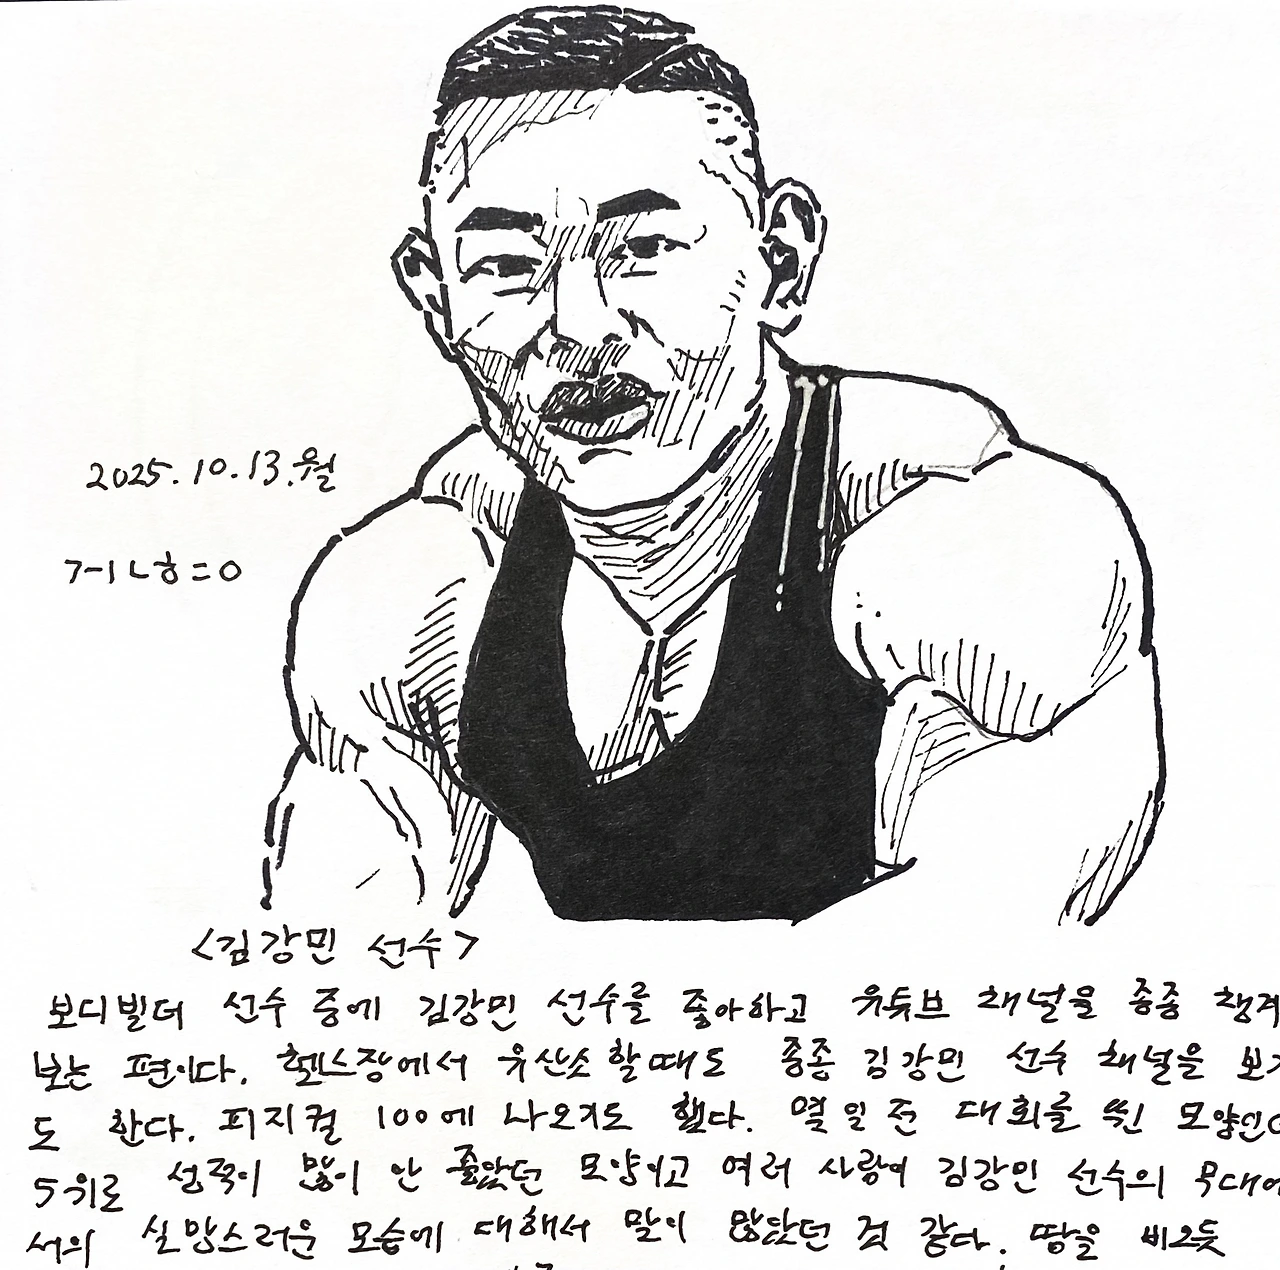 2025.10.13.월
<김강민 선수>
보디빌더 선수 중에 김강민 선수를 좋아하고 유튜브 채널을 종종 챙겨
보는 편이다. 헬스장에서 유산소 할때도 종종 김강민 선수 채널을 보기
도 한다. 피지컬 100에 나오기도 했다. 열일 전 대회를 뛴 모양인데
5위로 성적이 많이 안 좋았던 모양이고 여러 사람이 김강민 선수의 무대에
서의 실망스러운 모습에 대해서 말이 많았던 것 같다. 땀을 비오듯